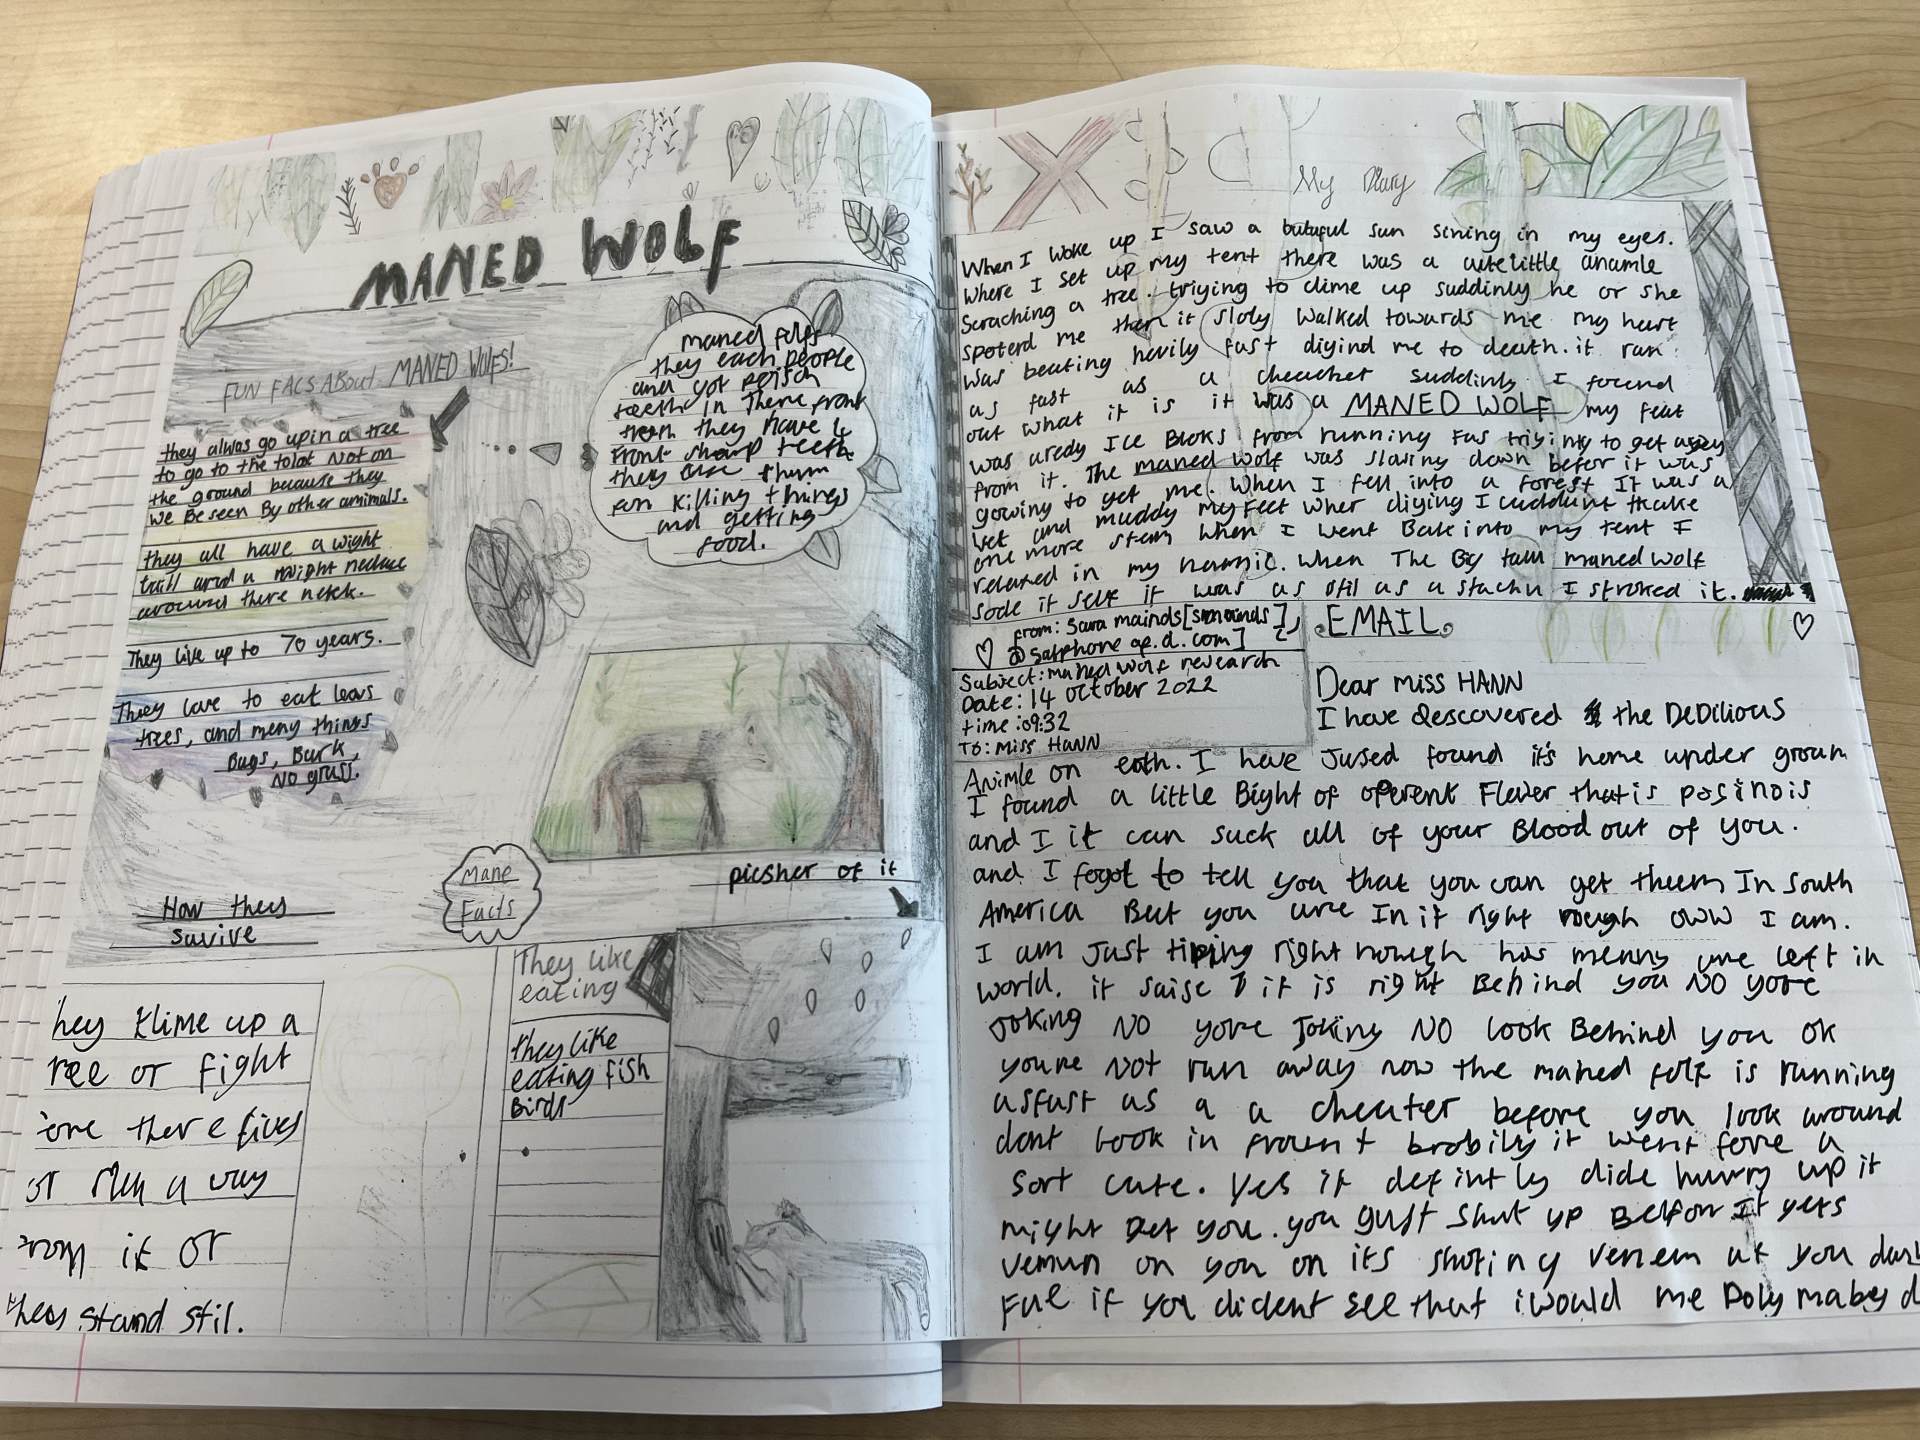 MANED WOLF
FUN FACS ABout MANED WOLFS!
they alwas go up in a tree
to go to the tolat Not on
the ground because they
we Be seen By other amimals.
they all have a wight
taill and a wight necluce
around there neck.
They live up to 70 years.
They love to eat leavs
trees, and meny things
Bugs, Bark,
No grass.
maned folfs
they each people
and got poisen
teeth in There front
they have 4
front sharp teeth
they use them
fon killing things
and getting
food.
picsher of it
Mane
Facts
How they
Savive
hey klime up a
ree or fight
fore there fives
or run a way
from it or
they stand stil.
They like
eating
they like
eating fish
Birds
My Diary
When I woke up I saw a butuful sun sining in my eyes.
Where I set up my tent there was a cute little anamle
Scraching a tree. triying to clime up suddinly he or she
spoterd me then it sloly walked towards me my heart
was beating hevily fast diyind me to death. it ran
as fast as a cheacket suddinly I found
out what it is it was a MANED WOLF my feat
was aredy ICE Bloks from running fas triying to get awey
from it. The maned wolf was slowing down befor it was
gowing to get me. When I fell into a forest It was a
wet and muddy my Feet wher diying I cuddunt thake
one more steap when I went Back into my tent I
relaxed in my hamoic. When The Big tall maned wolf
sode it self it was as stil as a stachu I stroked it.
from: Sara mainds [smainds
@satphone ap.d.com]
Subject: maned wolf research
Date: 14 october 2022
time: 09:32
To: miss HANN
EMAIL
Dear miss HANN
I have descovered the DeDilious
Animle on eoth. I have Jused found it's home under groun
I found a little Bight of operent Flewer that is posinois
and I it can suck all of your Blood out of you.
and I fogot to tell you that you can get theem In south
America But you are In it right nough oww I am.
I am Just tiping right nough has menny are left in
world. it saise it is right Behind you NO yore
Joking NO yore Joking NO look Behind you ok
youre Not run away now the maned folf is running
asfast as a a cheater before you look around
dont look in frount brobily it went fore a
sort cute. yes it defintly dide hurry up it
might get you. you gust shut up Befor It gets
vemun on you on its shoting venem at you
Fue if you dident see that i would me Doly